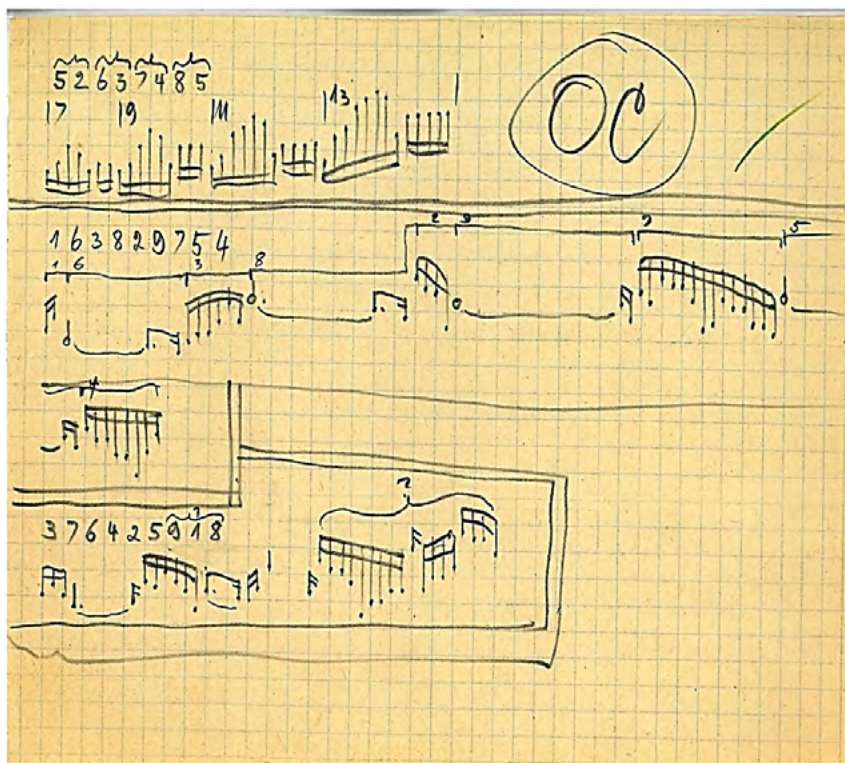 5 2 6 3 7 4 8 5
17 19 11 13
OC
1 6 3 8 2 9 7 5 4
1 6 3 8 2 9 7 5
4
3 7 6 4 2 5 9 1 8